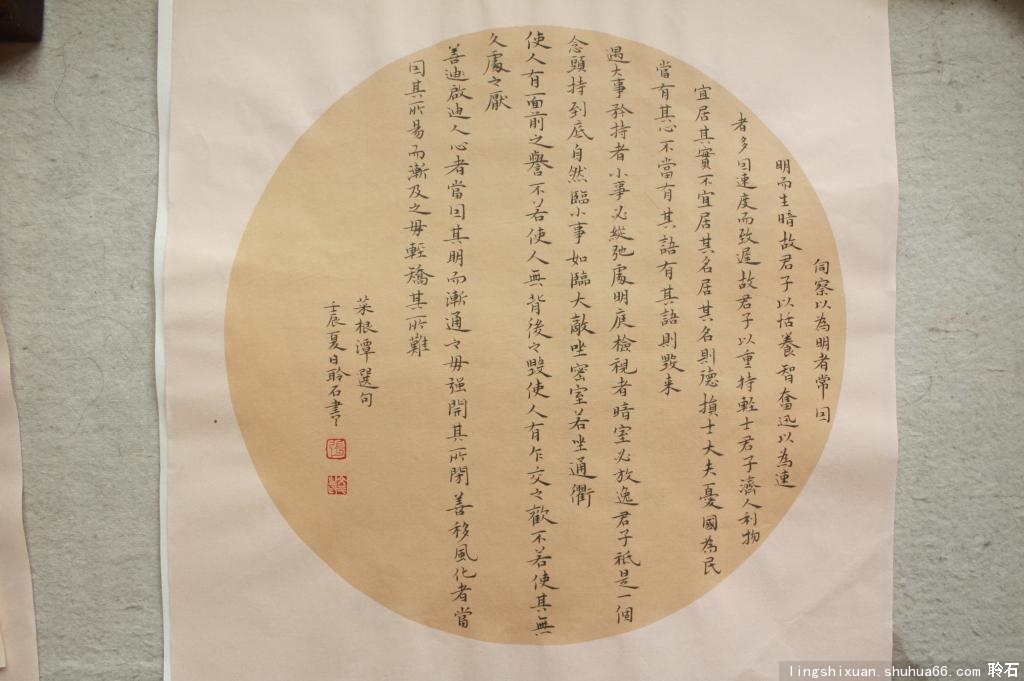 伺察以為明者常因
明而生暗故君子以恬養智奮迅以為速
者多因速度而致遲故君子以重持輕士君子濟人利物
宜居其實不宜居其名居其名則德損士大夫憂國為民
當有其心不當有其語有其語則毀来
遇大事矜持者小事必縱弛處明庭檢視者暗室必放逸君子衹是一個
念頭持到底自然臨小事如臨大敵坐密室若坐通衢
使人有面前之譽不若使人無背後之毀使人有乍交之歡不若使其無
久處之厭
善迪啟迪人心者當因其明而漸通之毋强開其所閉善移風化者當
因其所易而漸及之毋輕矯其所難
菜根潭選句
壬辰夏日聆石書
lingshixuan.shuhua66.com 聆石